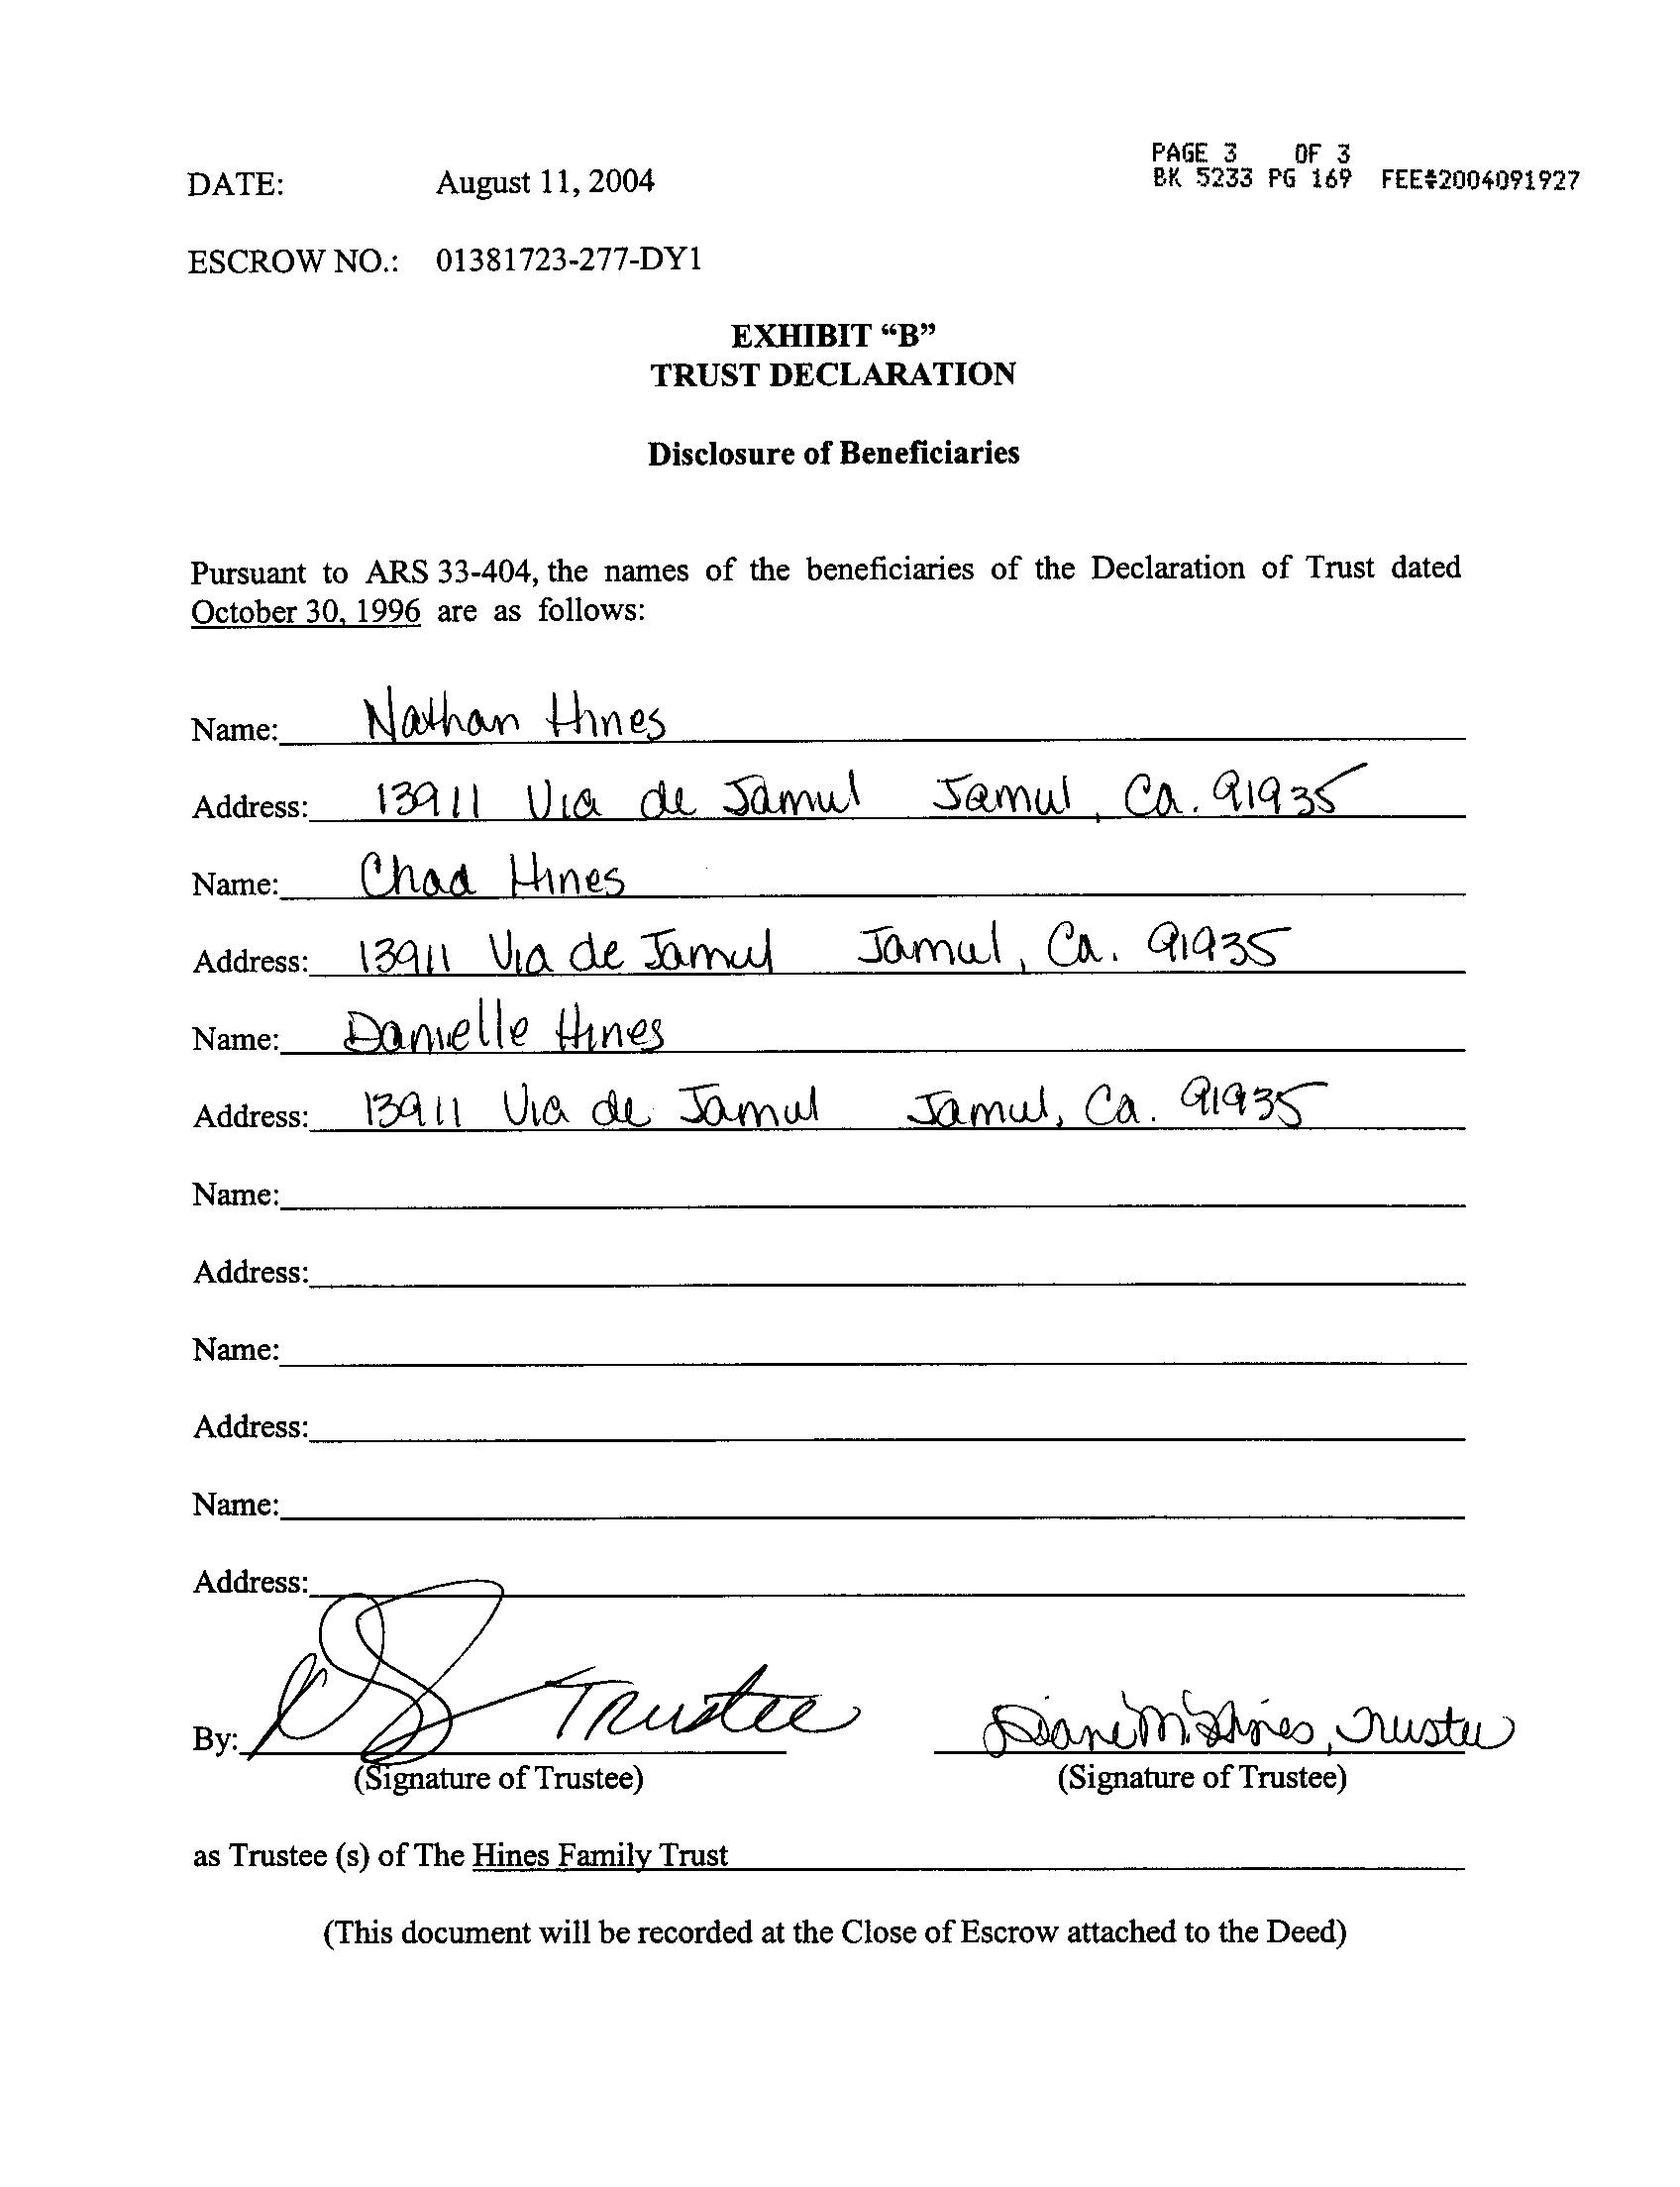 PAGE 3 OF 3
DATE: August 11, 2004 BK 5233 PG 169 FEE#2004091927
ESCROW NO.: 01381723-277-DY1
EXHIBIT “B”
TRUST DECLARATION
Disclosure of Beneficiaries
Pursuant to ARS 33-404, the names of the beneficiaries of the Declaration of Trust dated
October 30, 1996 are as follows:
Name: Nathan Hines
Address: 13911 Via de Jamul Jamul, Ca. 91935
Name: Chad Hines
Address: 13911 Via de Jamul Jamul, Ca. 91935
Name: Danielle Hines
Address: 13911 Via de Jamul Jamul, Ca. 91935
Name:
Address:
Name:
Address:
Name:
Address:
By: Trustee Diane M. Hines, Trustee
(Signature of Trustee) (Signature of Trustee)
as Trustee (s) of The Hines Family Trust
(This document will be recorded at the Close of Escrow attached to the Deed)